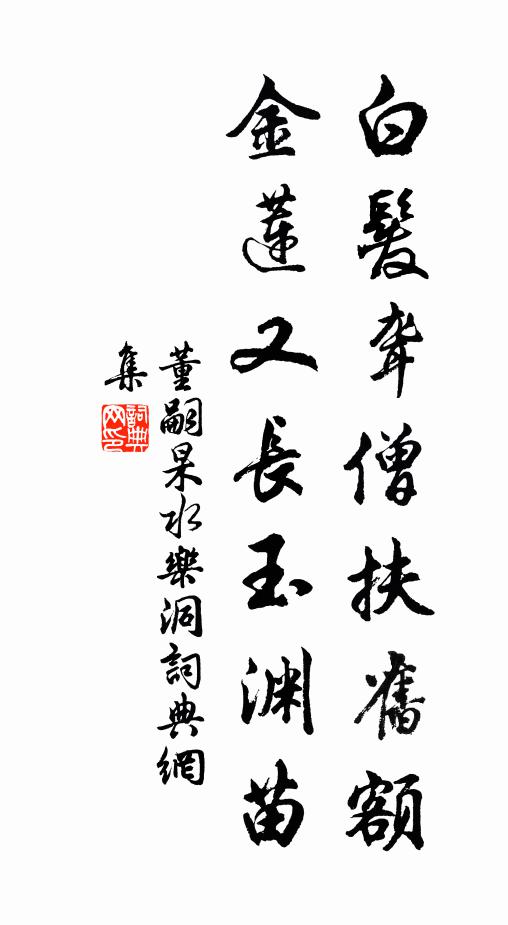 白髮聾僧扶舊額
金蓮又長玉淵苗
董嗣杲水樂洞詞典網
集
詞典網印